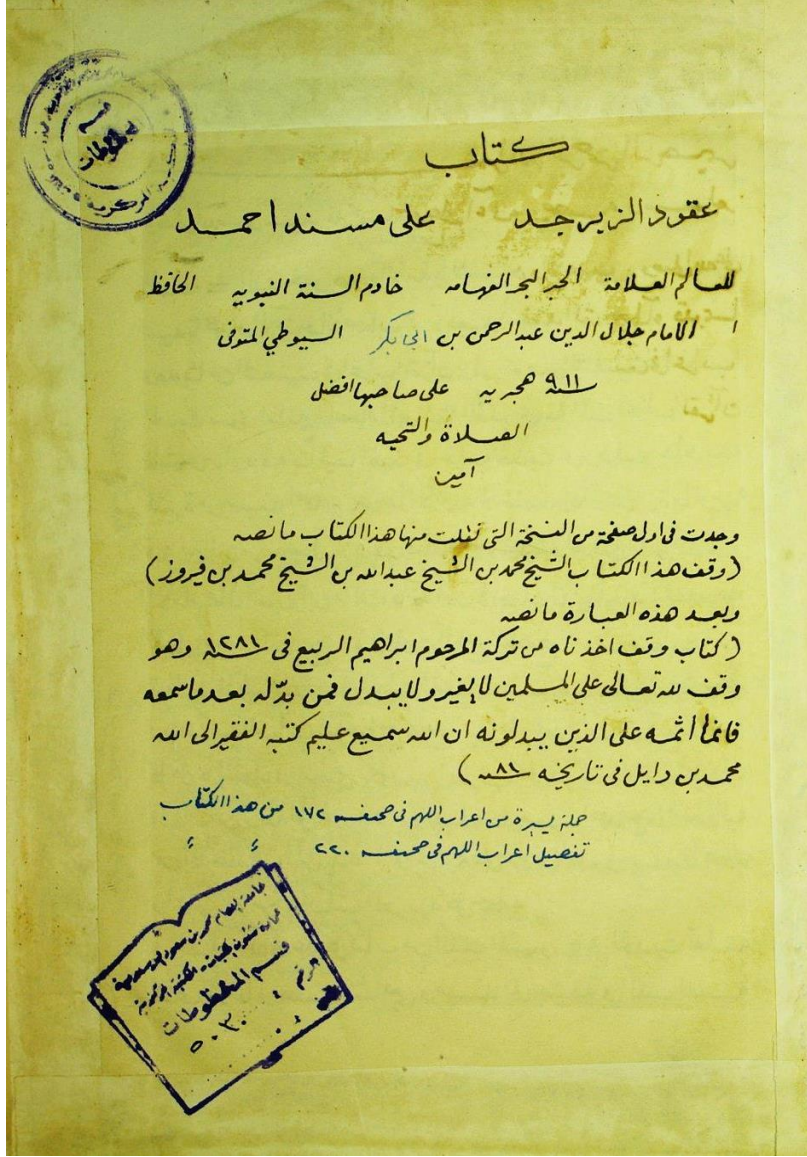 كتاب
عقود الزبرجد على مسند احمد
للعالم العلامة الحبر البحر الفهامه خادم السنة النبويه الحافظ
ا الامام جلال الدين عبدالرحمن بن ابى بكر السيوطي المتوفى
سنة ٩١١ هجريه على صاحبها افضل
الصلاة والتحيه
آمين
وجدت فى اول صفحة من النسخة التى نقلت منها هذا الكتاب ما نصه
(وقف هذا الكتاب الشيخ محمد بن الشيخ عبدالله بن الشيخ محمد بن فيروز)
وبعد هذه العبارة ما نصه
(كتاب وقف اخذناه من تركة المرحوم ابراهيم الربيع فى سنة ١٢٨١ وهو
وقف لله تعالى على المسلمين لا يغير ولا يبدل فمن بدّله بعد ما سمعه
فانما اثمه على الذين يبدلونه ان الله سميع عليم كتبه الفقير الى الله
محمد بن دايل فى تاريخه سنه ٨١)
جملة يسيرة من اعراب اللهم فى صحيفه ١٧٢ من هذا الكتاب
تفصيل اعراب اللهم فى صحيفه ٢٢٠ ״ ״
مخطوطات
المركزية
جامعة الامام محمد بن سعود الاسلامية
عمادة شئون المكتبات - المكتبة المركزية
قسم المخطوطات
الرقم
٥٠٣٠